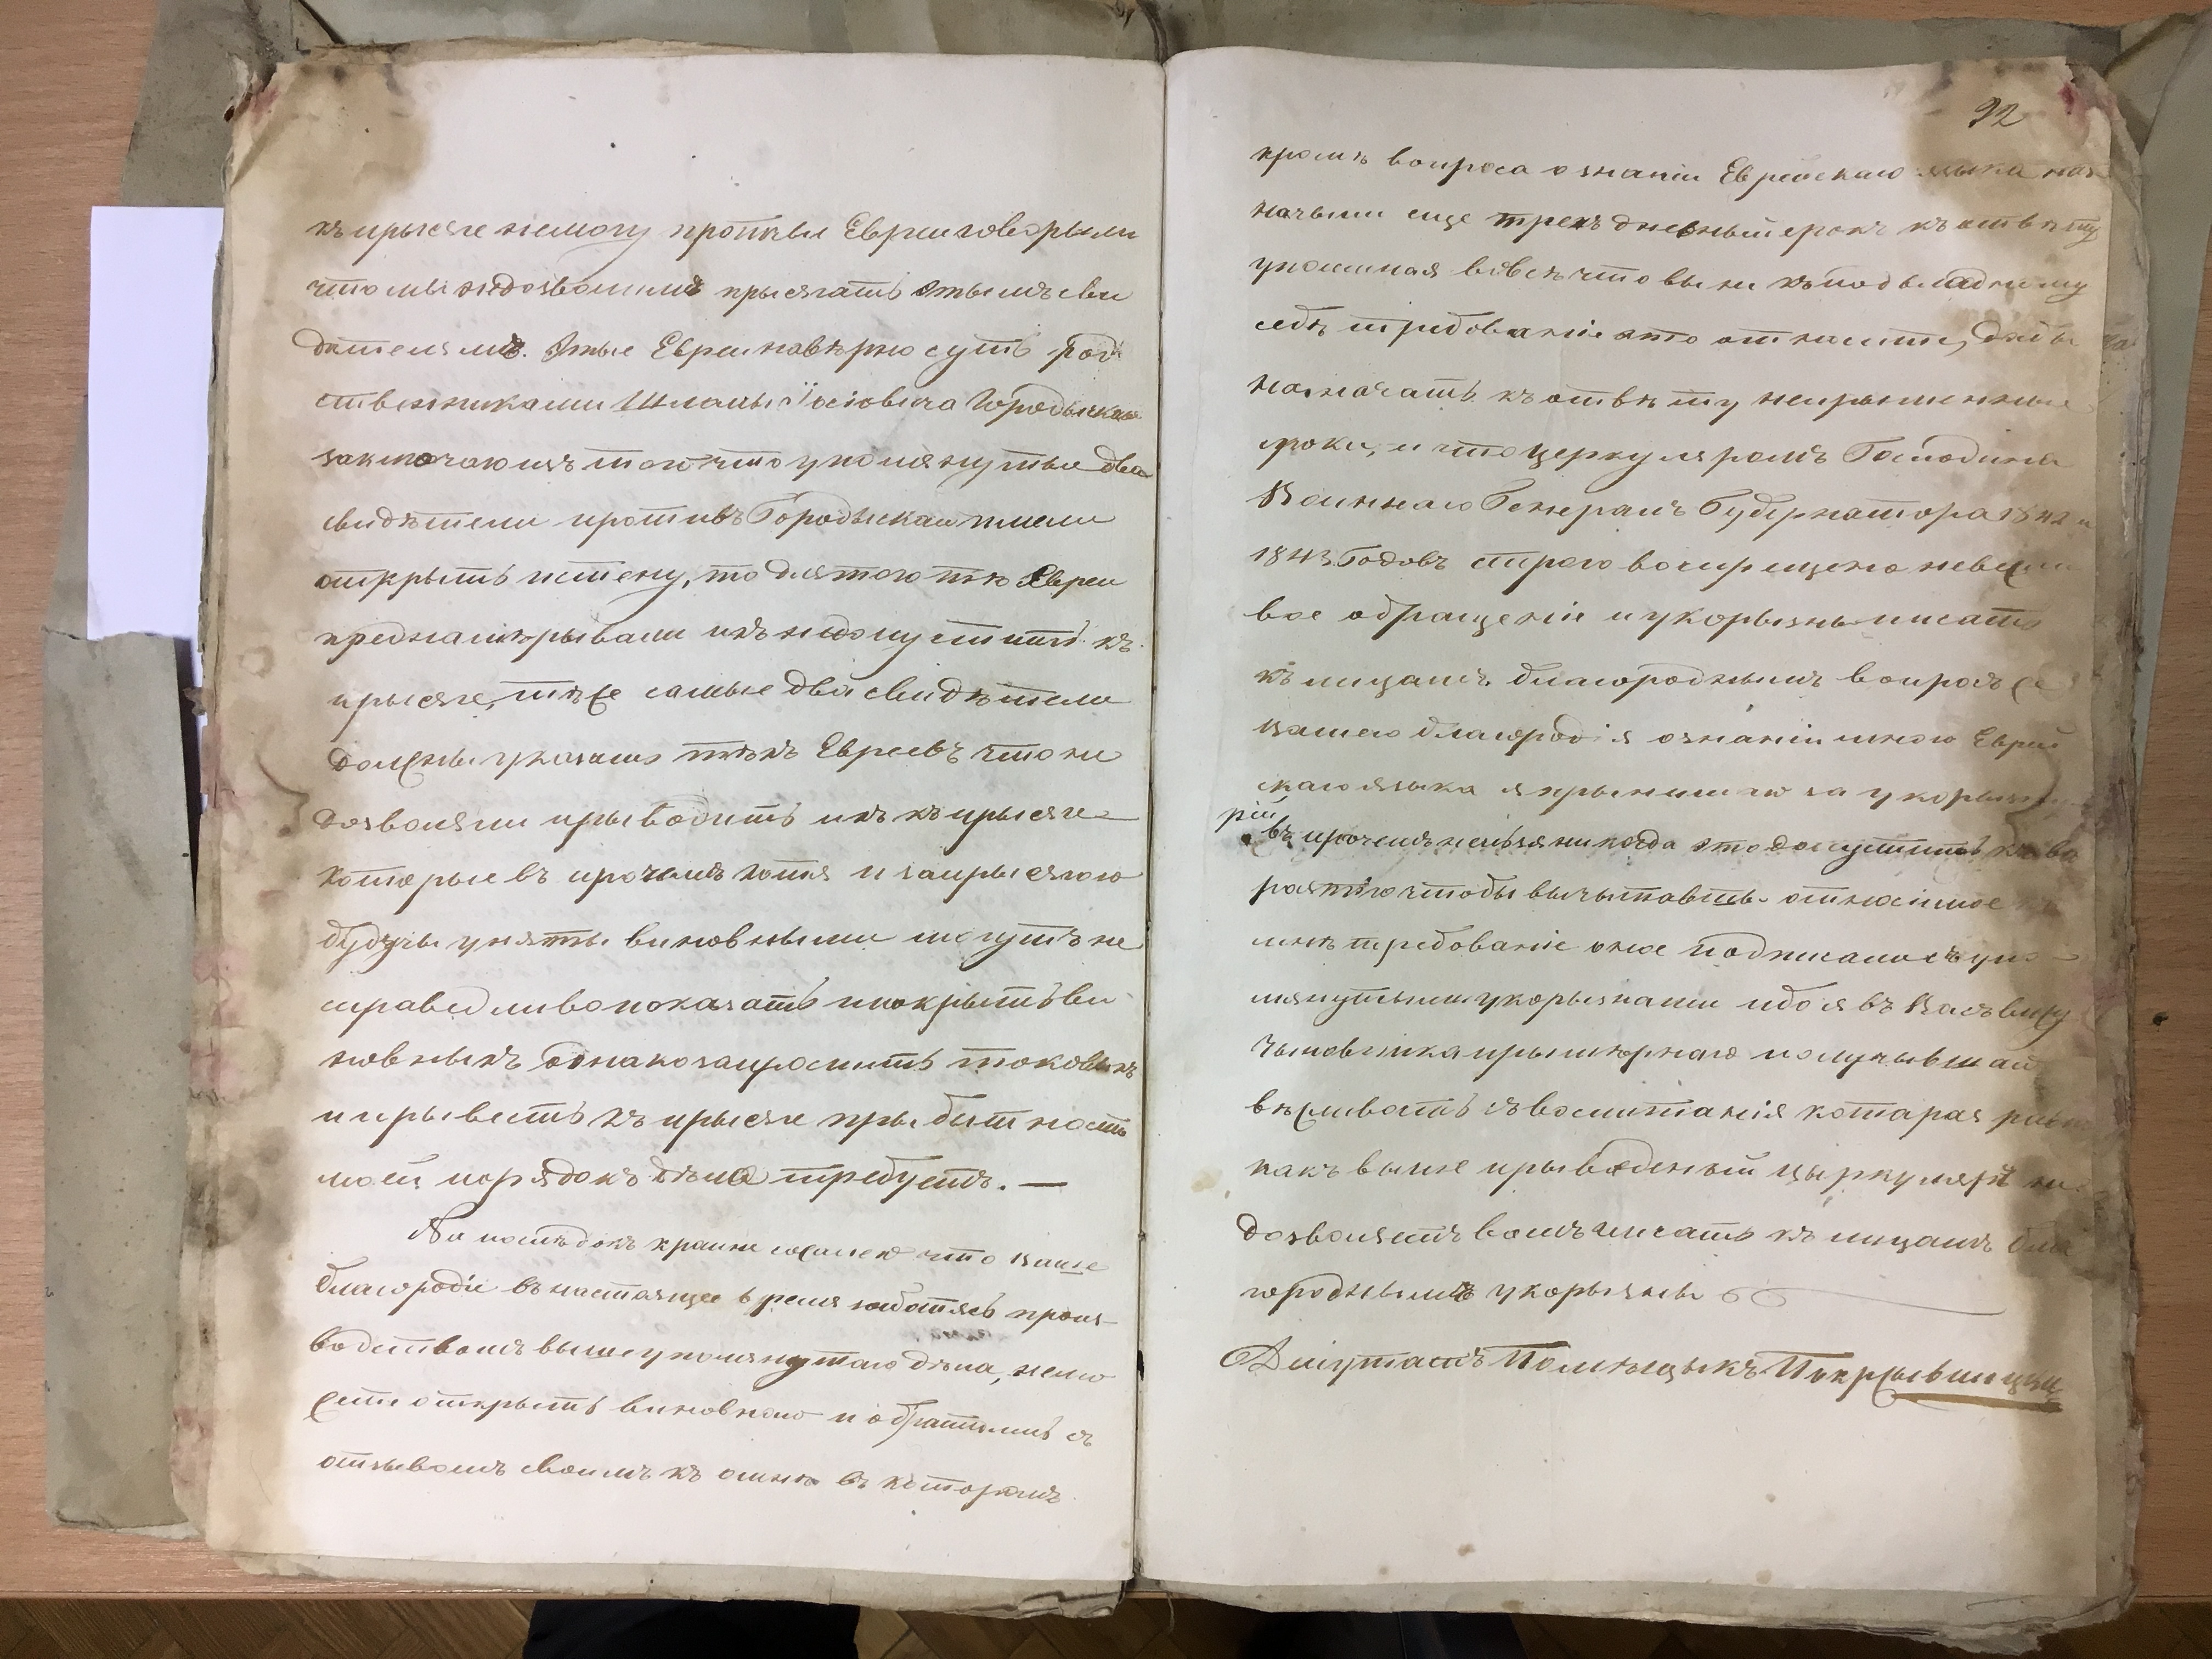 къ прысяге немогу протчьи Евреи говорыли
что мы недозволимъ прысягать этымъ сви
дѣтелямъ. Этые Евреи навѣрно суть род
ственниками Шламы Іосіовича Городыскаго
заключаюизъ того что упомянутые два
свидѣтели противъ Городыскаи имели
открыть истену, то для того тѣ Евреи
преднамѣрывали ихъ недопустить къ
прысяге, тѣже самые два свидѣтели
должны указать тѣхъ Евреевъ что не
дозволяли прыводить ихъ къ прысяге
которые въ прочемъ хотя и запрысягою
будучы уняты виновными могутъ не
справедливо показать и покрыть ви
новныхъ однако запросить таковыхъ
и прывесть къ прысяге пры бытность
моей порядокъ дѣла требуетъ. —
На последокъ крайне сожалею что Ваше
благородіе въ настоящее время заботясь произ
водствомъ вышеупомянутаго дѣла, немо
жете открыть виновнаго и обратились съ
отзывомъ своимъ къ омнѣ въ которомъ
92
кромѣ вопроса о знаніи Еврейскаго языка наз
начыли еще трехъ дневный срокъ къ отвѣту
упоминая вовсѣ что вы не къ подъвладному
себѣ требованіе это относите, дабы
назначать къ отвѣту непрыменные
сроки, и что церкуляромъ Господина
Военнаго Генералъ Губернатора 1842 и
1843 Годовъ строго воспрещено невежли
вое обращеніе и укорызны писать
къ лицамъ благороднымъ вопросъ же
вашего благородія ознаніи мною Еврей
скаго языка япрынимаю за укорызну
рій
въ прочемъ нельзя никогда это допустить къ ва
роятію чтобы вычытавшы относимое къ
мнѣ требованіе оное подписали съ упо
мянутыми укорызнами ибо я въ Васъ вижу
чыновника прымернаго получывшаго
вѣжливость съ воспитанія котарая равно
какъ выше прыведеный цыркуляръ не
дозволяетъ вамъ писать къ лицамъ бла
городнымъ укорызны
Депутатъ Помѣщыкъ